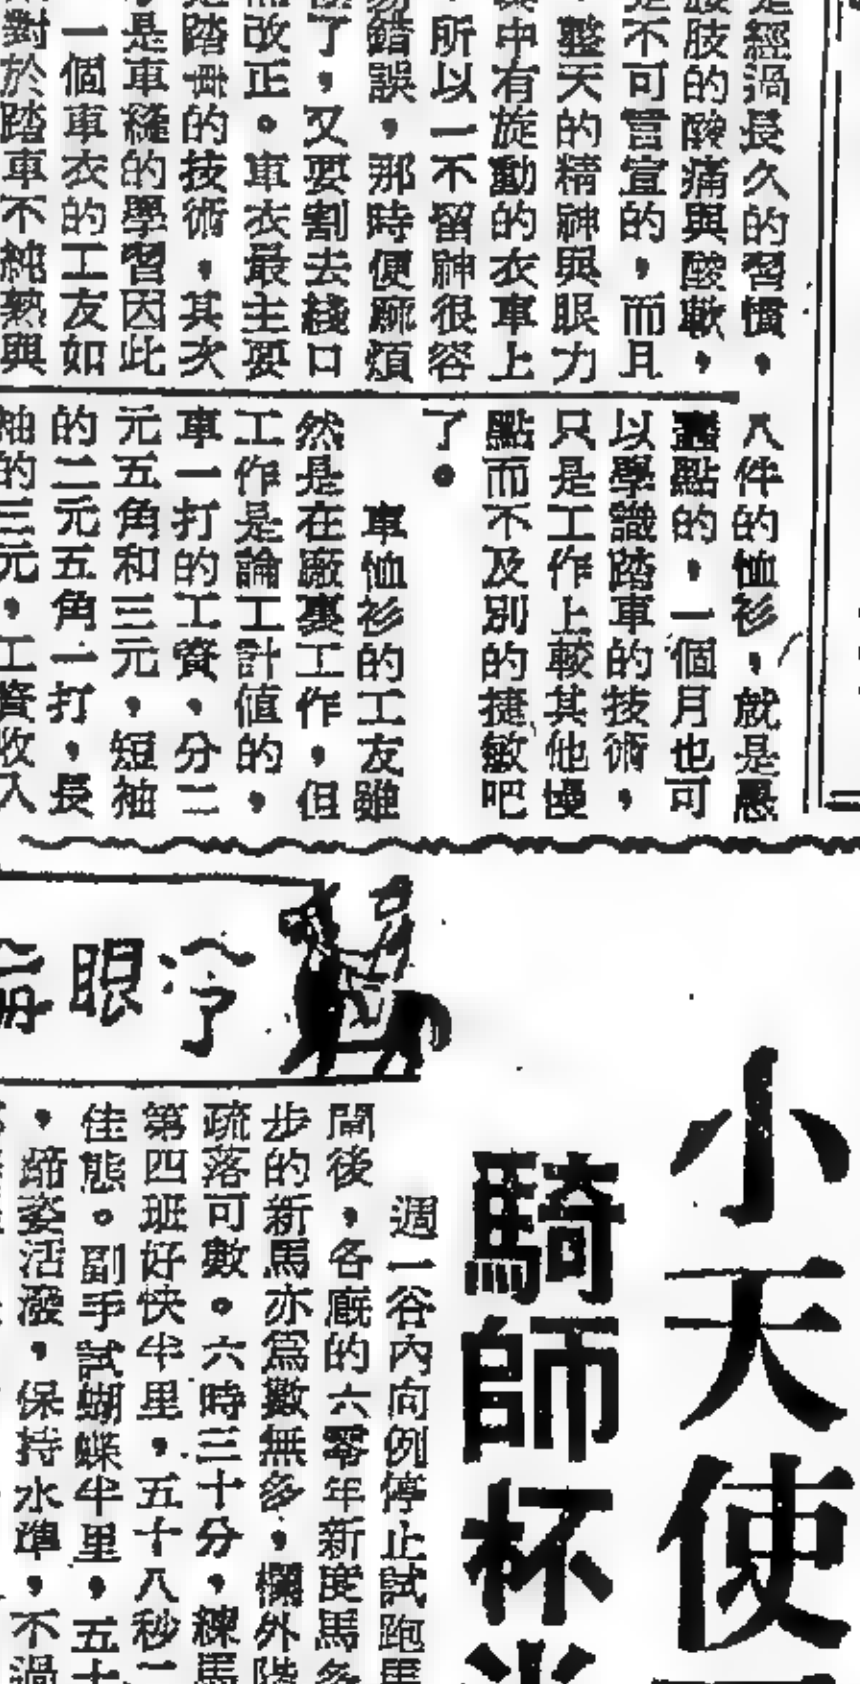 是經過長久的習慣，
腰肢的酸痛與酸軟，
是不可言宣的，而且
整天的精神與眼力
中有旋動的衣車上
所以一不留神很容
易錯誤，那時便麻煩
了，又要割去綫口
而改正。車衣最主要
是踏車的技術，其次
是車縫的學習因此
一個車衣的工友如
對於踏車不純熟與
八件的恤衫，就是愚
蠢點的，一個月也可
以學識踏車的技術，
只是工作上較其他慢
點而不及別的捷敏吧
了。
車恤衫的工友雖
然是在廠裏工作，但
工作是論工計値的，
車一打的工資，分二
元五角和三元，短袖
的二元五角一打，長
袖的三元，工資收入
小天使
騎師杯
冷眼
週一谷內向例停止試跑馬
閘後，各廐的六零年新度馬多
步的新馬亦爲數無多，欄外
疏落可數。六時三十分，練馬
第四班好快半里，五十八秒二
佳態。副手試蝴蝶半里，五十
，蹄姿活潑，保持水準，不過